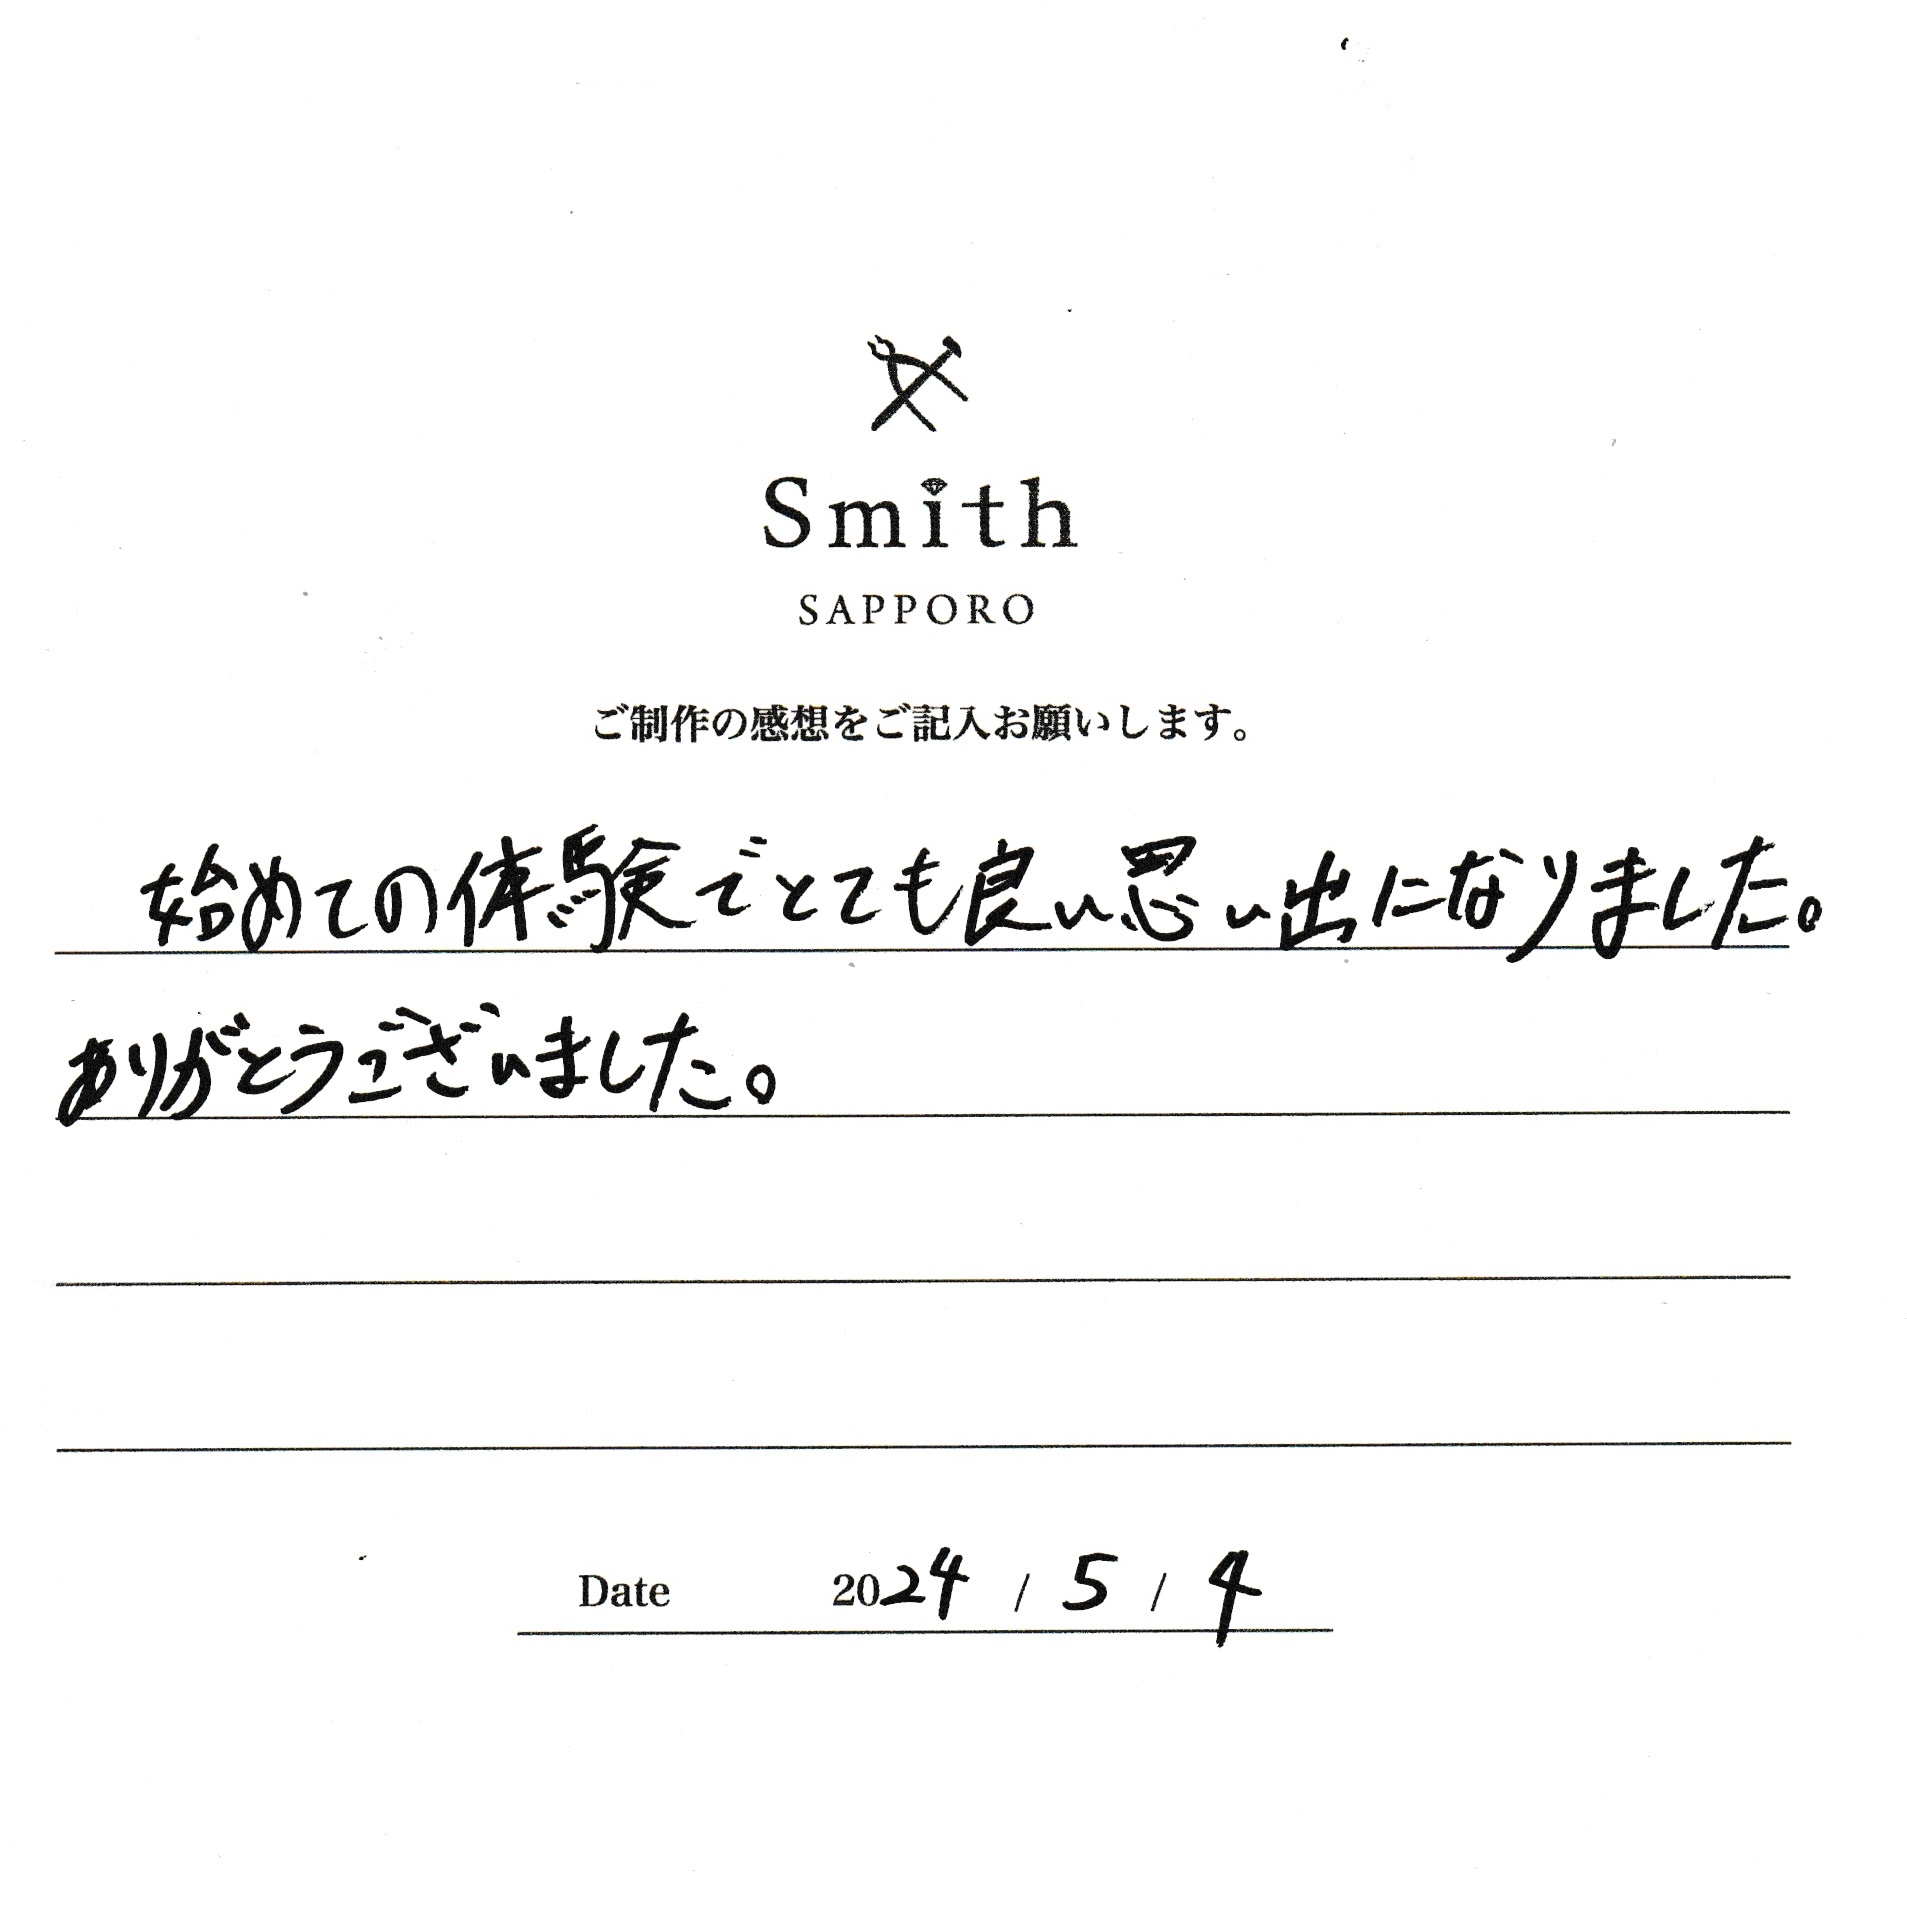 Smith
SAPPORO
ご制作の感想をご記入お願いします。
始めての体験でとても良い思い出になりました。
ありがとうございました。
Date 2024 / 5 / 4